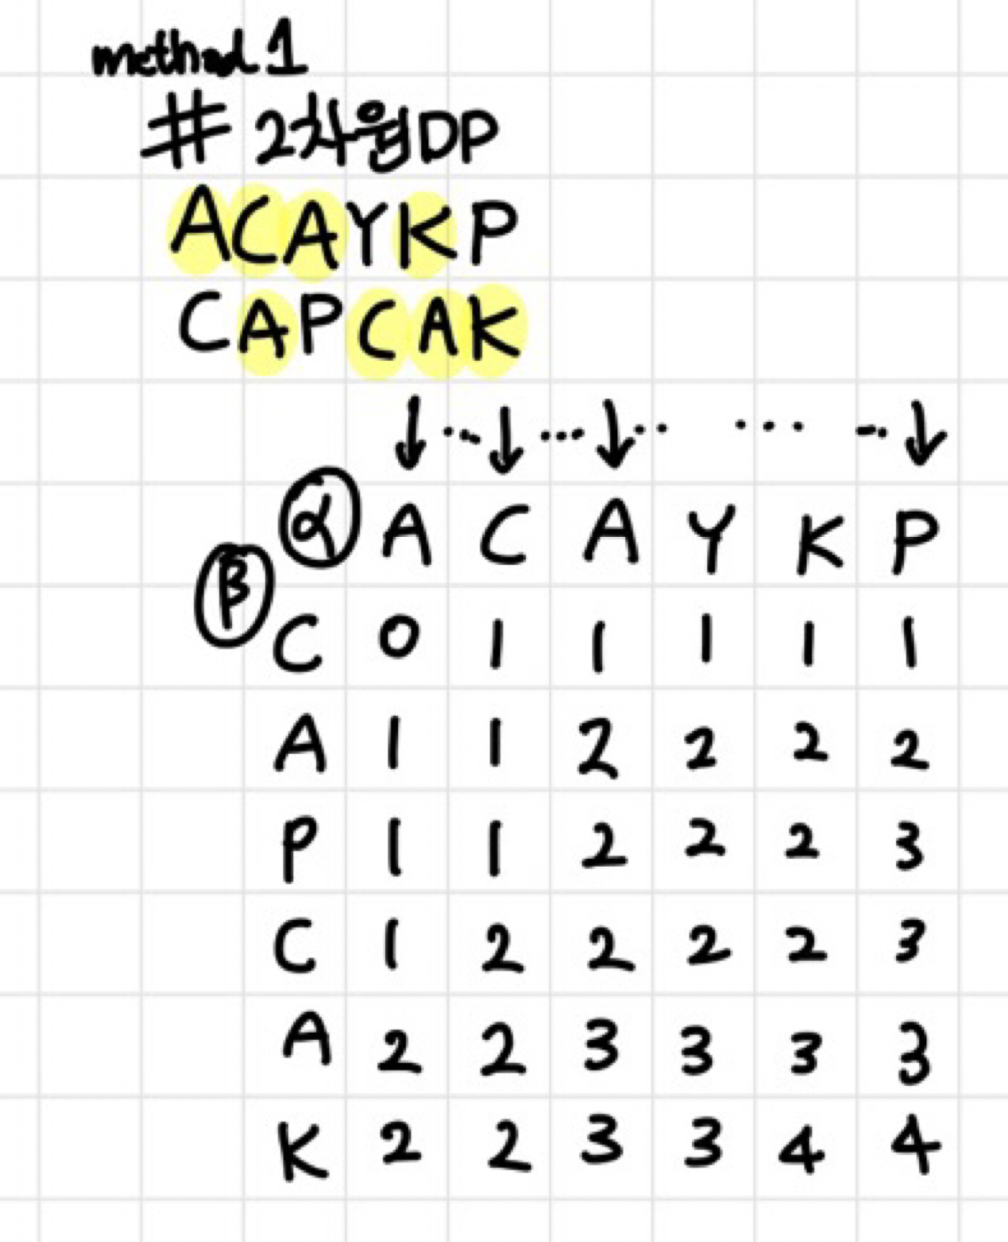 method 1
# 2차원DP
ACAYKP
CAPCAK
↓ ... ↓ ... ↓ .. ... -.. ↓
α A C A Y K P
β
C 0 1 1 1 1 1
A 1 1 2 2 2 2
P 1 1 2 2 2 3
C 1 2 2 2 2 3
A 2 2 3 3 3 3
K 2 2 3 3 4 4